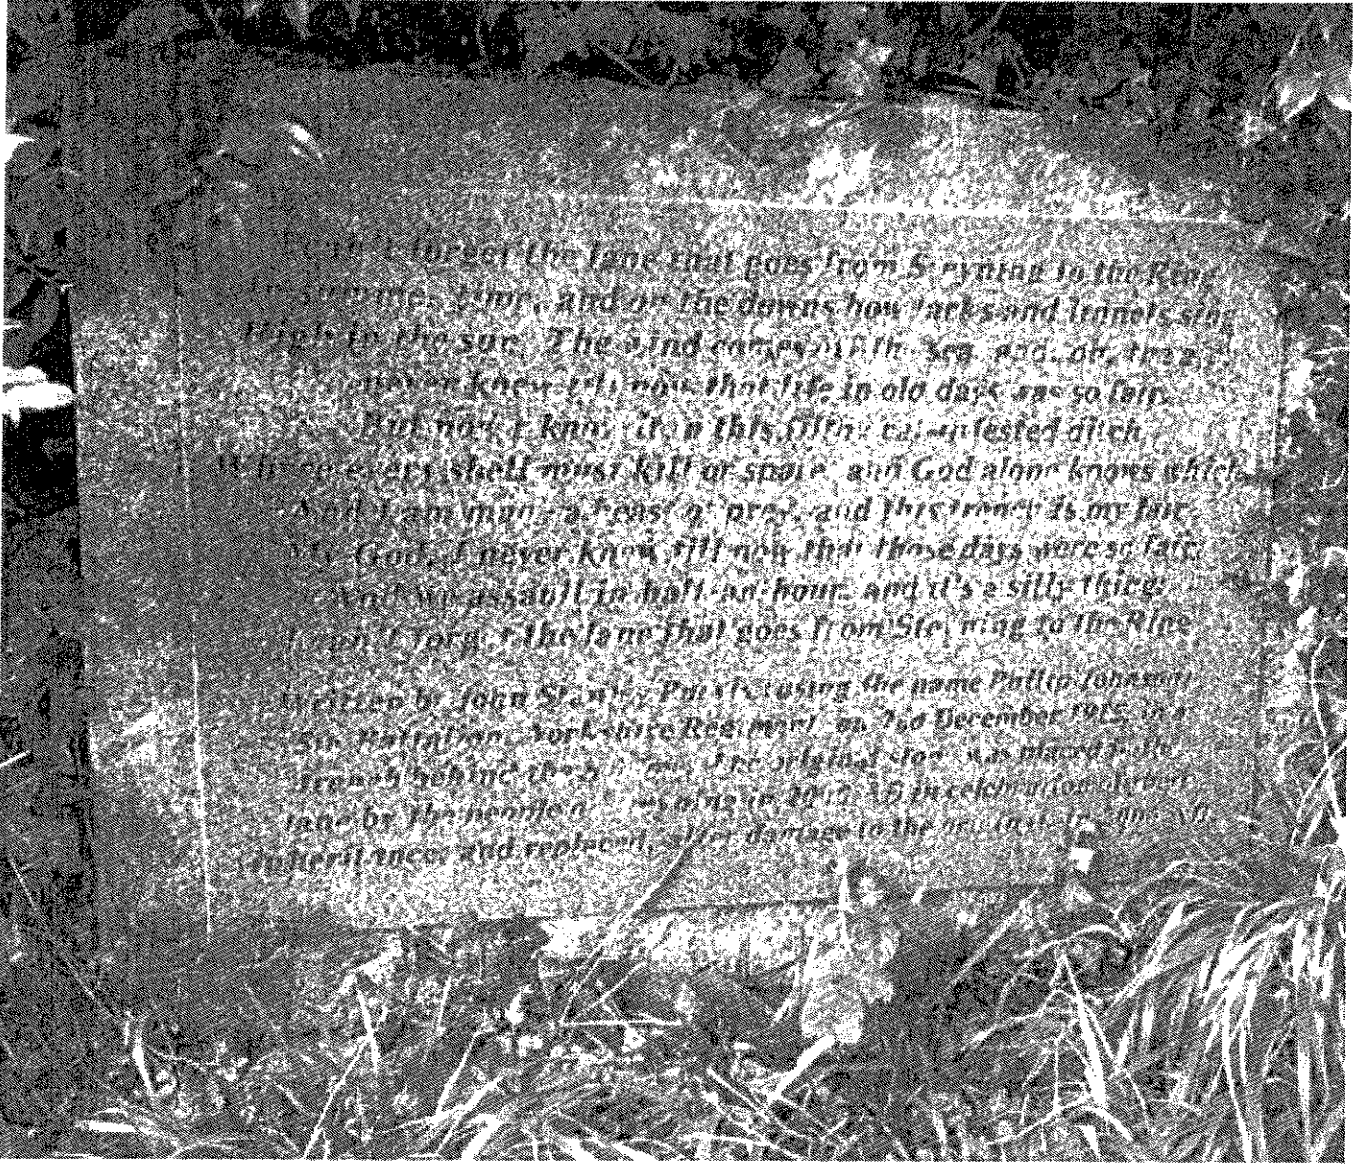 I can't forget the lane that goes from Steyning to the Ring
In summer time, and on the downs how larks and linnets sing
High in the sun. The wind comes off the sea, and, oh, the air
I never knew till now that life in old days was so fair.
But now I know it in this filthy rat-infested ditch
Where every shell must kill or spare, and God alone knows which
And I am made a beast of prey, and this trench is my lair
My God, I never knew till now that those days were so fair.
And we assault in half-an-hour, and it's a silly thing:
I can't forget the lane that goes from Steyning to the Ring
Written by John Stanley Purvis (using the name Philip Johnson)
5th Battalion, Yorkshire Regiment, on 2nd December 1915, in a
trench behind the The original stone was placed in the
lane by the people of Steyning in in celebration
and replaced, after damage to the original